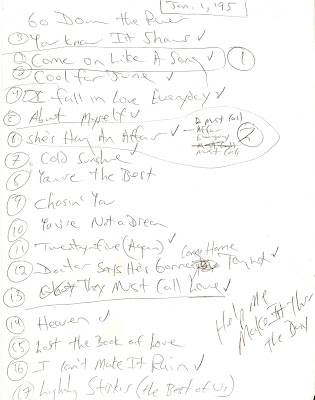 Jan. 1, 195
Go Down the River
③ You Know It Shows ✓
① Come on Like A Song ✓ ①
② Cool for June ✓
④ I fall in Love Everyday ✓
⑤ About Myself ✓
6 She's Having An Affair ✓ - & Must Call
Affair
Everyday
Must Call
②
⑦ Cold Sunshine ✓
⑧ You're the Best
⑨ Chasin' You
⑩ You're Not a Dream
⑪ Twenty-five (Again) ✓
⑫ Doctor Says He's Gonna Come Home Tonight ✓
⑬ They Must Call Love ✓
⑭ Heaven ✓
⑮ Lost the Book of Love
⑯ I Can't Make It Rain ✓
⑰ Lightning Strikes (the Best of Us)
Help Me
Make It Thru
the Day